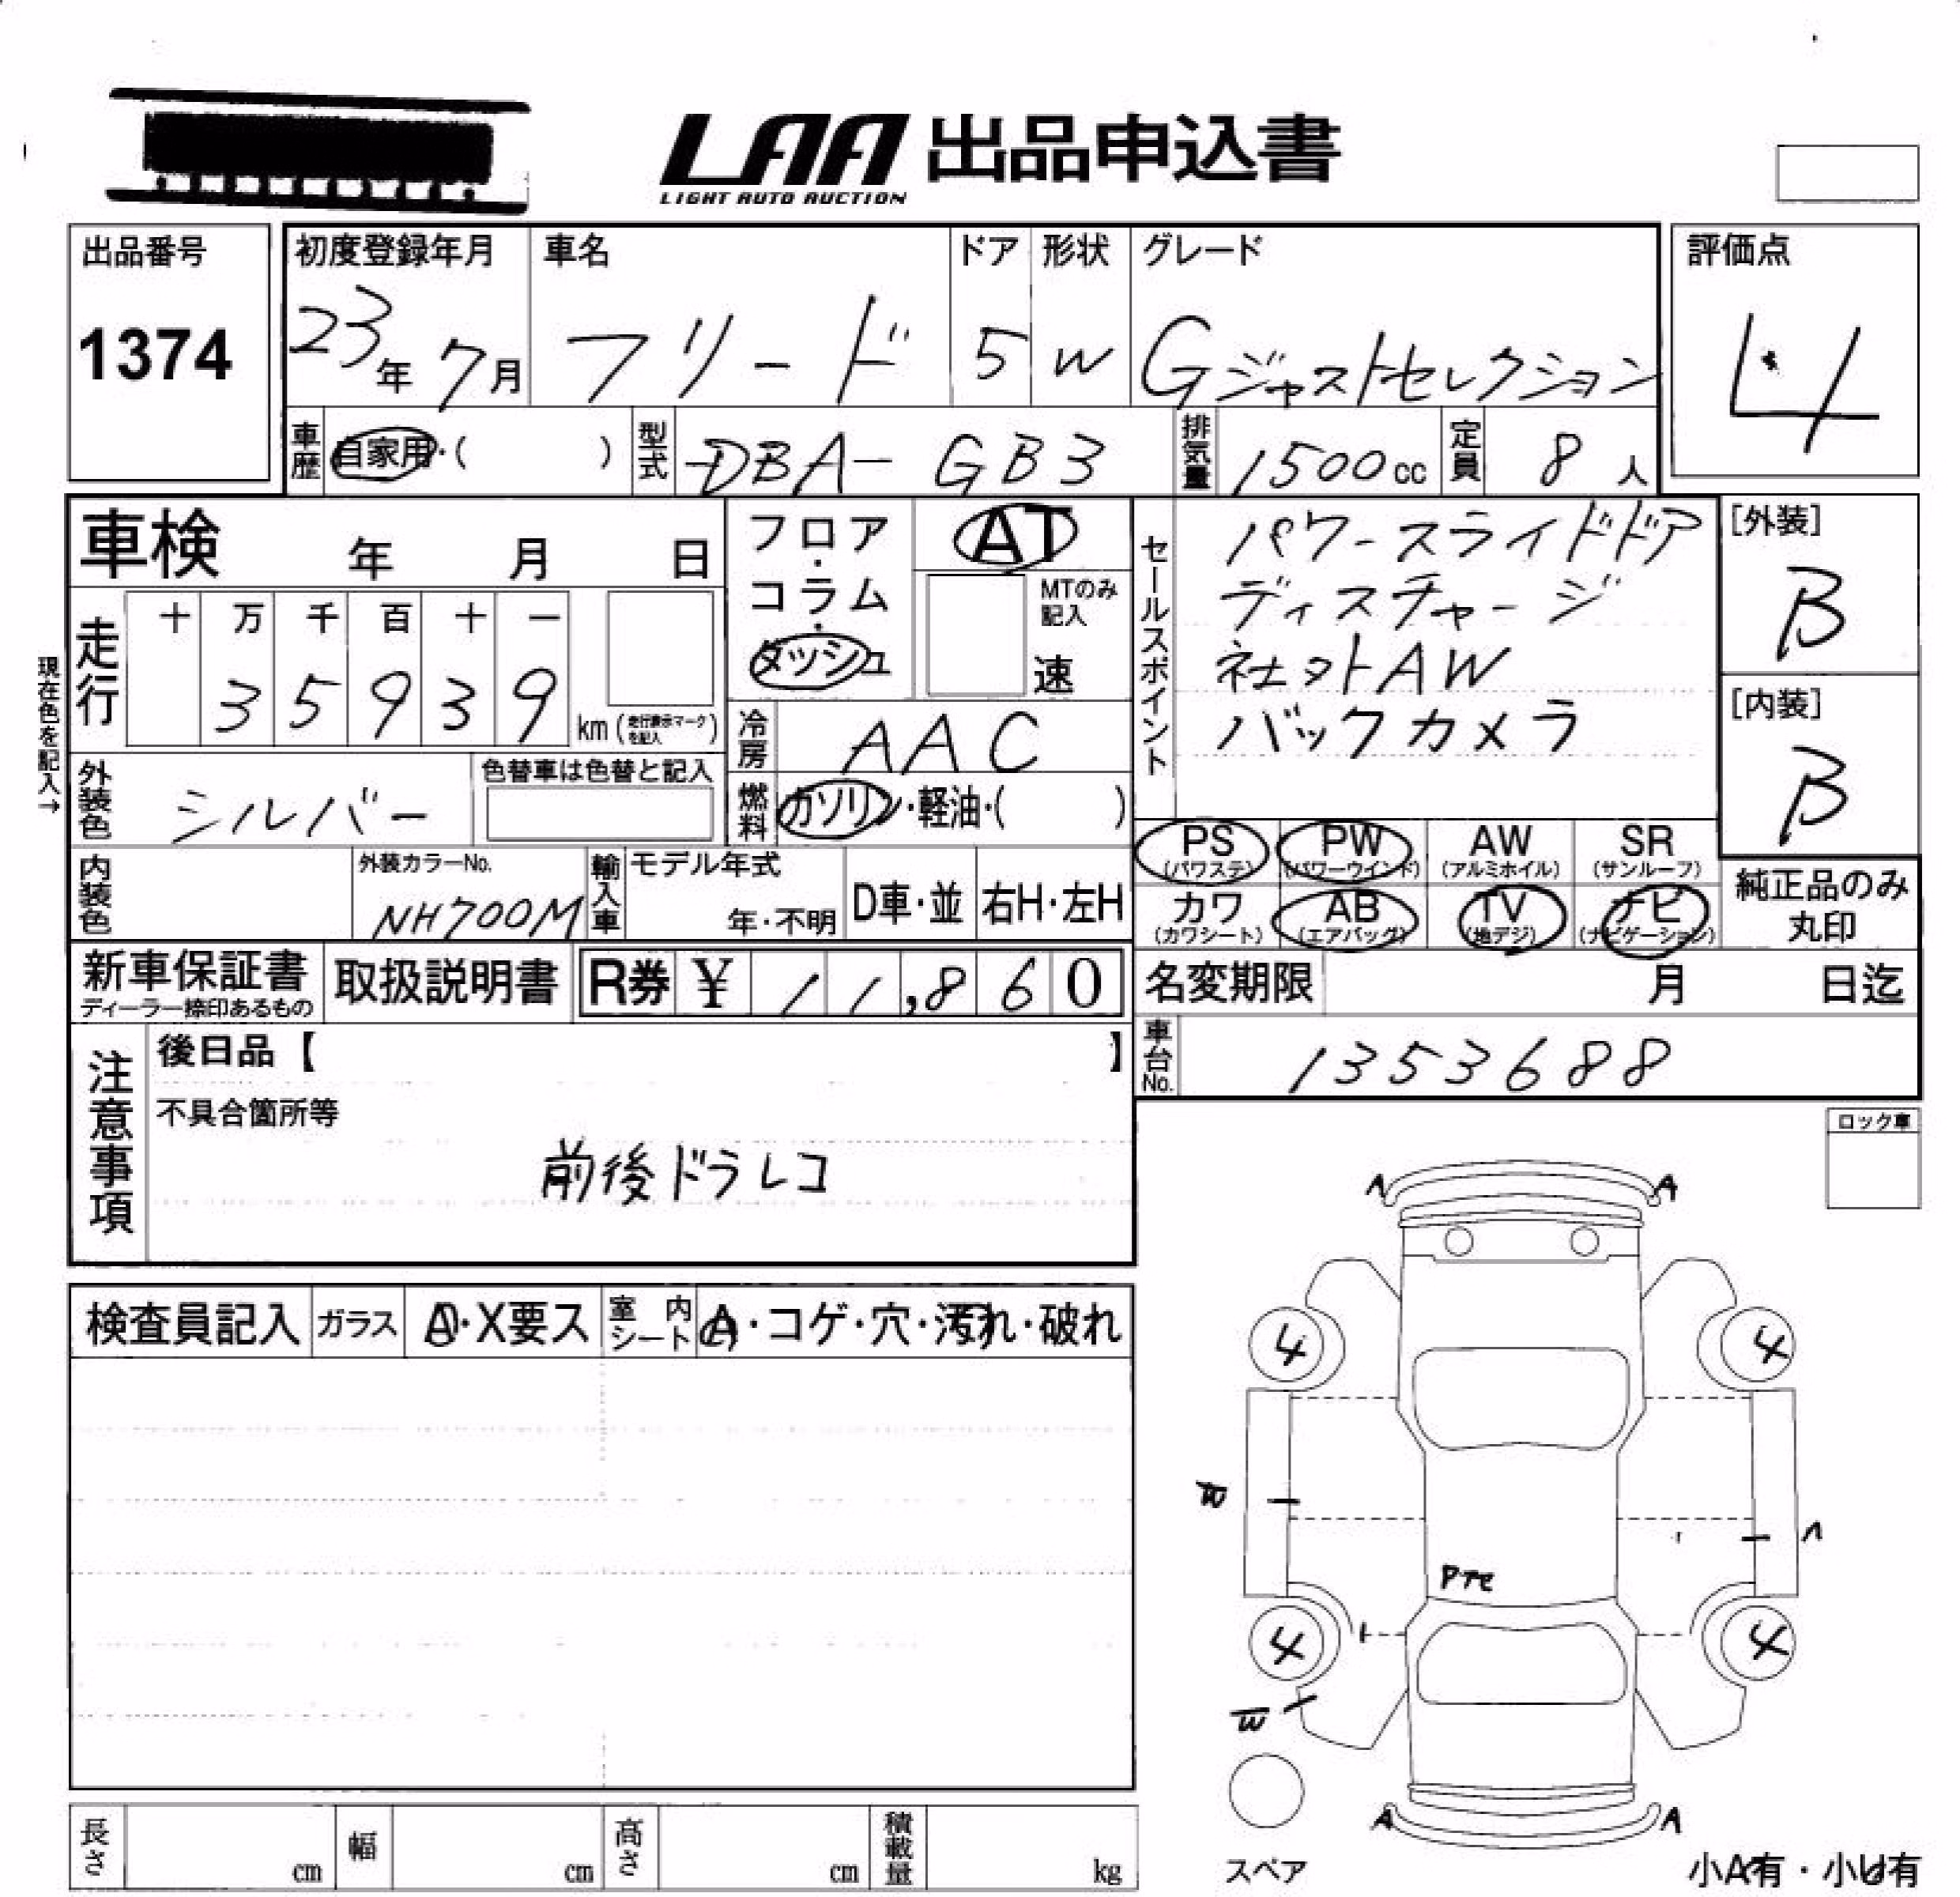 LAA 出品申込書
LIGHT AUTO AUCTION
出品番号
1374
初度登録年月
23年 7月
車名
フリード
ドア
5
形状
W
グレード
Gジャストセレクション
評価点
4
車歴 自家用・( )
型式 DBA- GB3
排気量 1500cc
定員 8人
車検 年 月 日
フロア・コラム・ダッシュ
AT
MTのみ記入
速
セールスポイント
パワースライドドア
ディスチャージ
社外AW
バックカメラ
[外装]
B
[内装]
B
現在色を記入→
走行
十 万 千 百 十 一
3 5 9 3 9
km (走行表示マークを記入)
冷房 AAC
外装色 シルバー
色替車は色替と記入
燃料 ガソリン・軽油・( )
内装色
外装カラーNo.
NH700M
輸入車
モデル年式
年・不明
D車・並
右H・左H
PS (パワステ)
PW (パワーウインド)
AW (アルミホイル)
SR (サンルーフ)
カワ (カワシート)
AB (エアバッグ)
TV (地デジ)
ナビ (ナビゲーション)
純正品のみ丸印
新車保証書
ディーラー捺印あるもの
取扱説明書
R券 ¥ 11,860
名変期限 月 日迄
車台No. 1353688
注意事項
後日品【 】
不具合箇所等
前後ドラレコ
ロック車
検査員記入
ガラス
A・X要ス
室内シート
A・コゲ・穴・汚れ・破れ
A A
4 4
4 4
A A
スペア
長さ cm
幅 cm
高さ cm
積載量 kg
小A有・小U有